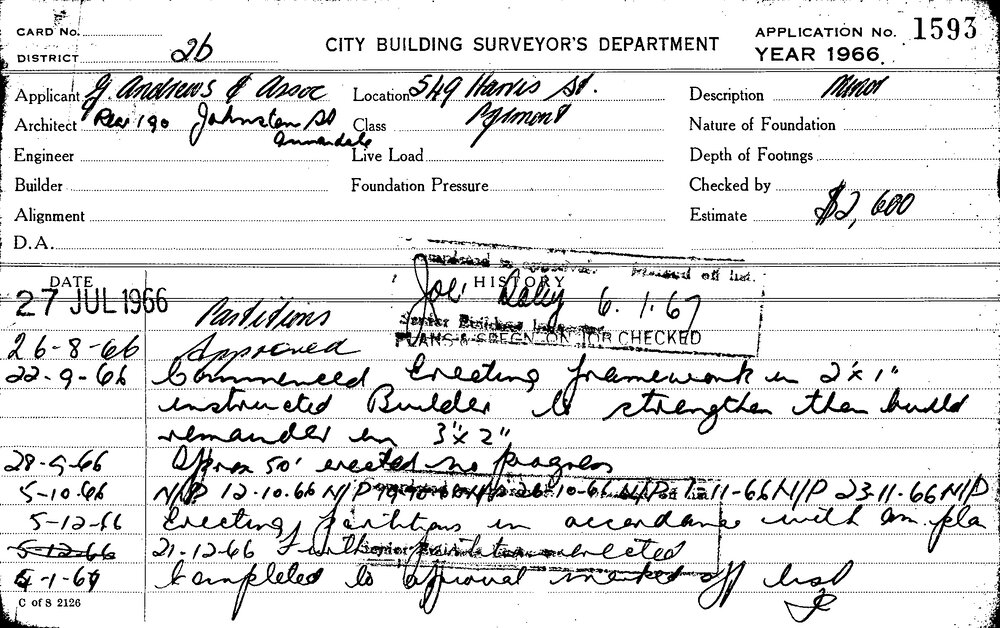 CARD No.
DISTRICT 26
CITY BUILDING SURVEYOR'S DEPARTMENT
APPLICATION No. 1593
YEAR 1966.
Applicant G. Andrews & Assoc
Location 549 Harris St.
Description Minor
Architect Rear 190 Johnston St
Annandale
Class Pyrmont
Nature of Foundation
Engineer
Live Load
Depth of Footings
Builder
Foundation Pressure
Checked by
Alignment
Estimate $2,600
D.A.
Completed as approved. Marked off list.
DATE
HISTORY
27 JUL 1966
Partitions
Joe Daley 6.1.67
Senior Building
PLANS & SPECN. ON JOB CHECKED
26-8-66 Approved
22-9-66 Commenced Erecting framework in 2"x1"
instructed Builder to strengthen then build
remander in 3"x2"
28-9-66 Aprox 50' erected no progress
5-10-66 N/P 12.10.66 N/P N/P 26-10-66 N/P 11-66 N/P 23.11.66 N/P
5-12-66 Erecting partitions in accordance with am. pla
5-12-66 21-12-66 Further erected
Senior
4-1-67 Completed to approval marked off list
C of S 2126